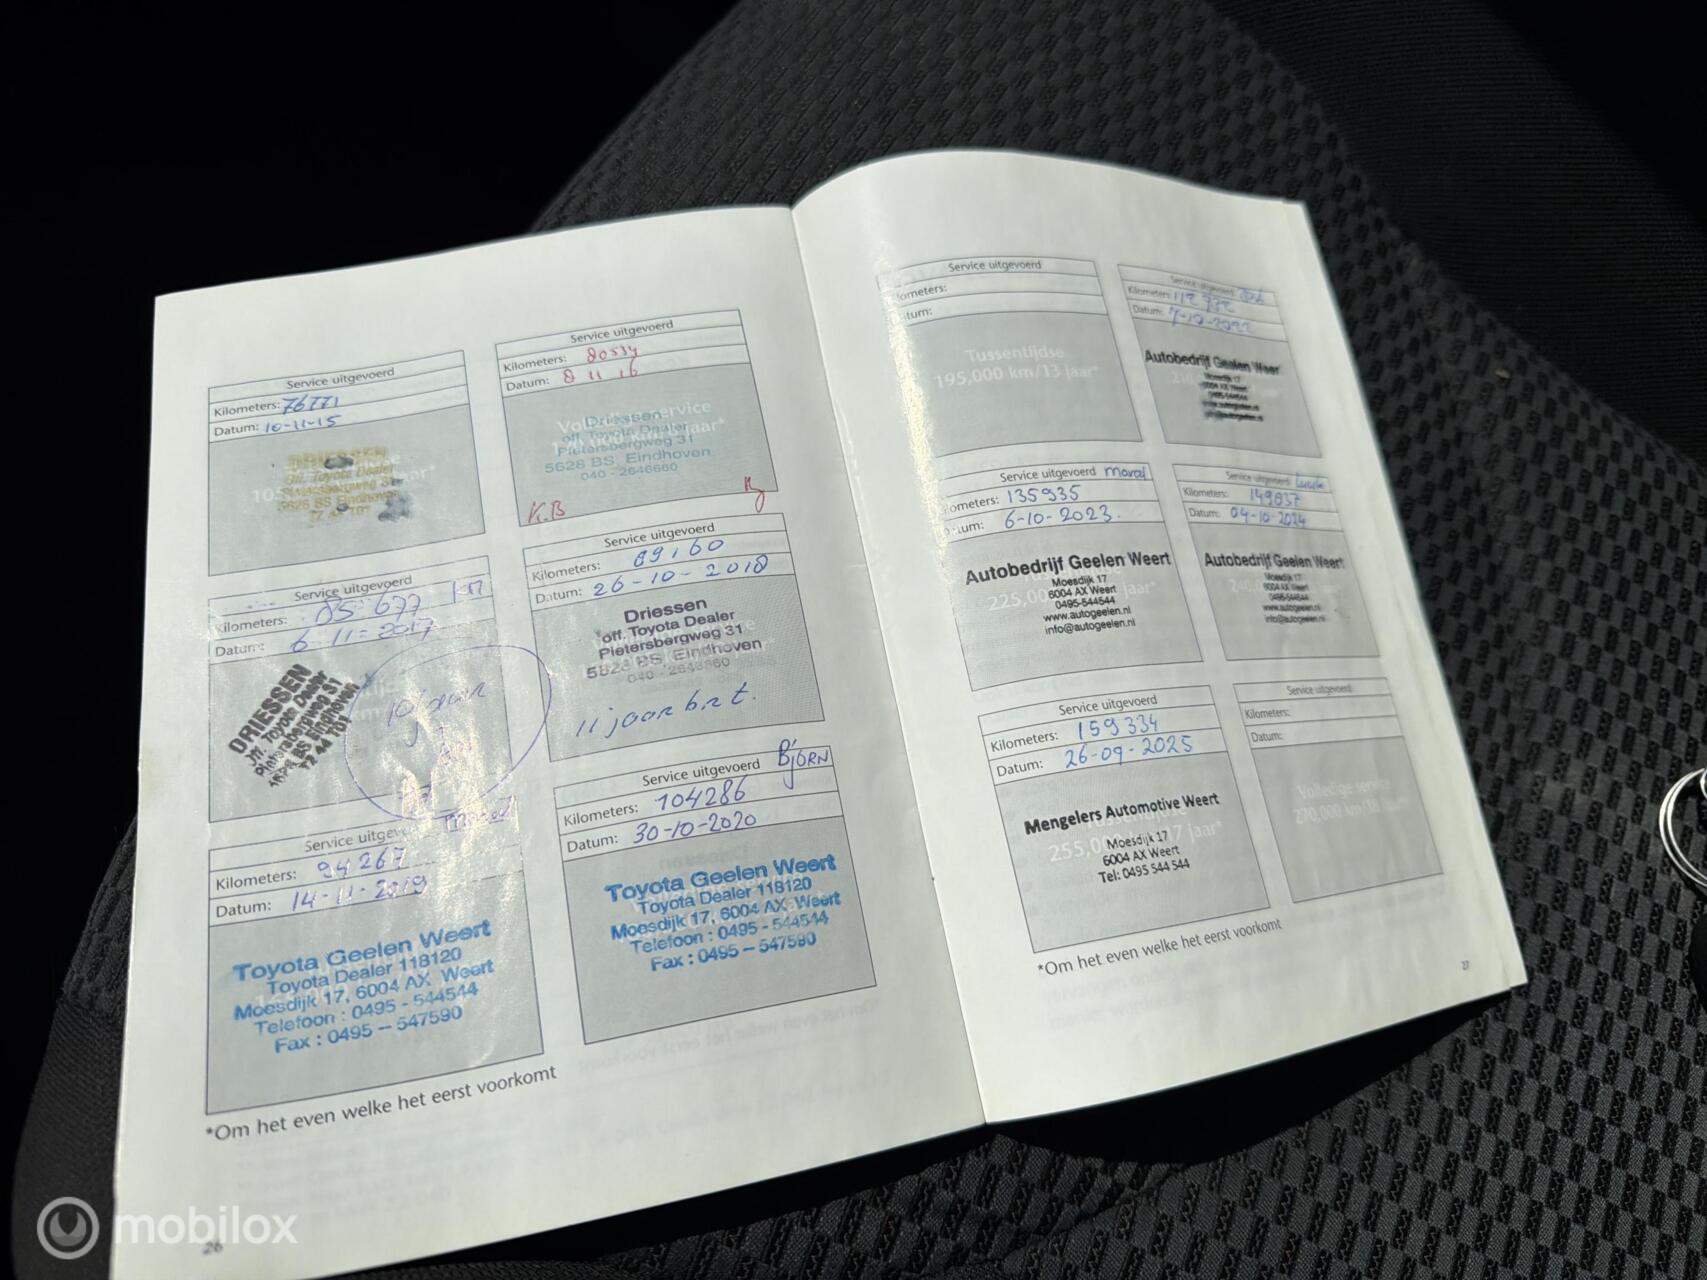 Service uitgevoerd
Kilometers: 76771
Datum: 10-11-15
off. Toyota Dealer
Pietersbergweg 31
5628 BS Eindhoven
Service uitgevoerd
Kilometers: 80534
Datum: 8 11 16
Driessen
off. Toyota Dealer
Pietersbergweg 31
5628 BS. Eindhoven
040 - 2646660
K.B
Service uitgevoerd
Kilometers: 85 677 km
Datum: 6-11-2017
DRIESSEN
Off. Toyota Dealer
Pietersbergweg 31
BS Eindhoven
10 jaar
Service uitgevoerd
Kilometers: 89160
Datum: 26-10-2018
Driessen
off. Toyota Dealer
Pietersbergweg 31
5628 BS. Eindhoven
040 - 2646660
11 jaar brt.
Service uitgevoerd
Kilometers: 94267
Datum: 14-11-2019
Toyota Geelen Weert
Toyota Dealer 118120
Moesdijk 17, 6004 AX Weert
Telefoon : 0495 - 544544
Fax : 0495 - 547590
Service uitgevoerd BJORN
Kilometers: 104286
Datum: 30-10-2020
Toyota Geelen Weert
Toyota Dealer 118120
Moesdijk 17, 6004 AX Weert
Telefoon : 0495 - 544544
Fax : 0495 - 547590
*Om het even welke het eerst voorkomt
26
Service uitgevoerd
Kilometers:
Datum:
Tussentijdse
195,000 km/13 jaar*
Service uitgevoerd
Kilometers:
Datum: 7-10-2022
Autobedrijf Geelen Weert
Moesdijk 17
6004 AX Weert
0495-544544
www.autogeelen.nl
info@autogeelen.nl
Service uitgevoerd Marcel
Kilometers: 135935
Datum: 6-10-2023.
Autobedrijf Geelen Weert
Moesdijk 17
6004 AX Weert
0495-544544
www.autogeelen.nl
info@autogeelen.nl
Service uitgevoerd
Kilometers: 149837
Datum: 04-10-2024
Autobedrijf Geelen Weert
Moesdijk 17
6004 AX Weert
0495-544544
www.autogeelen.nl
info@autogeelen.nl
Service uitgevoerd
Kilometers: 159334
Datum: 26-09-2025
Mengelers Automotive Weert
Tussentijdse
255,000 km/17 jaar*
Moesdijk 17
6004 AX Weert
Tel: 0495 544 544
Service uitgevoerd
Kilometers:
Datum:
Volledige service
*Om het even welke het eerst voorkomt
27
mobilox